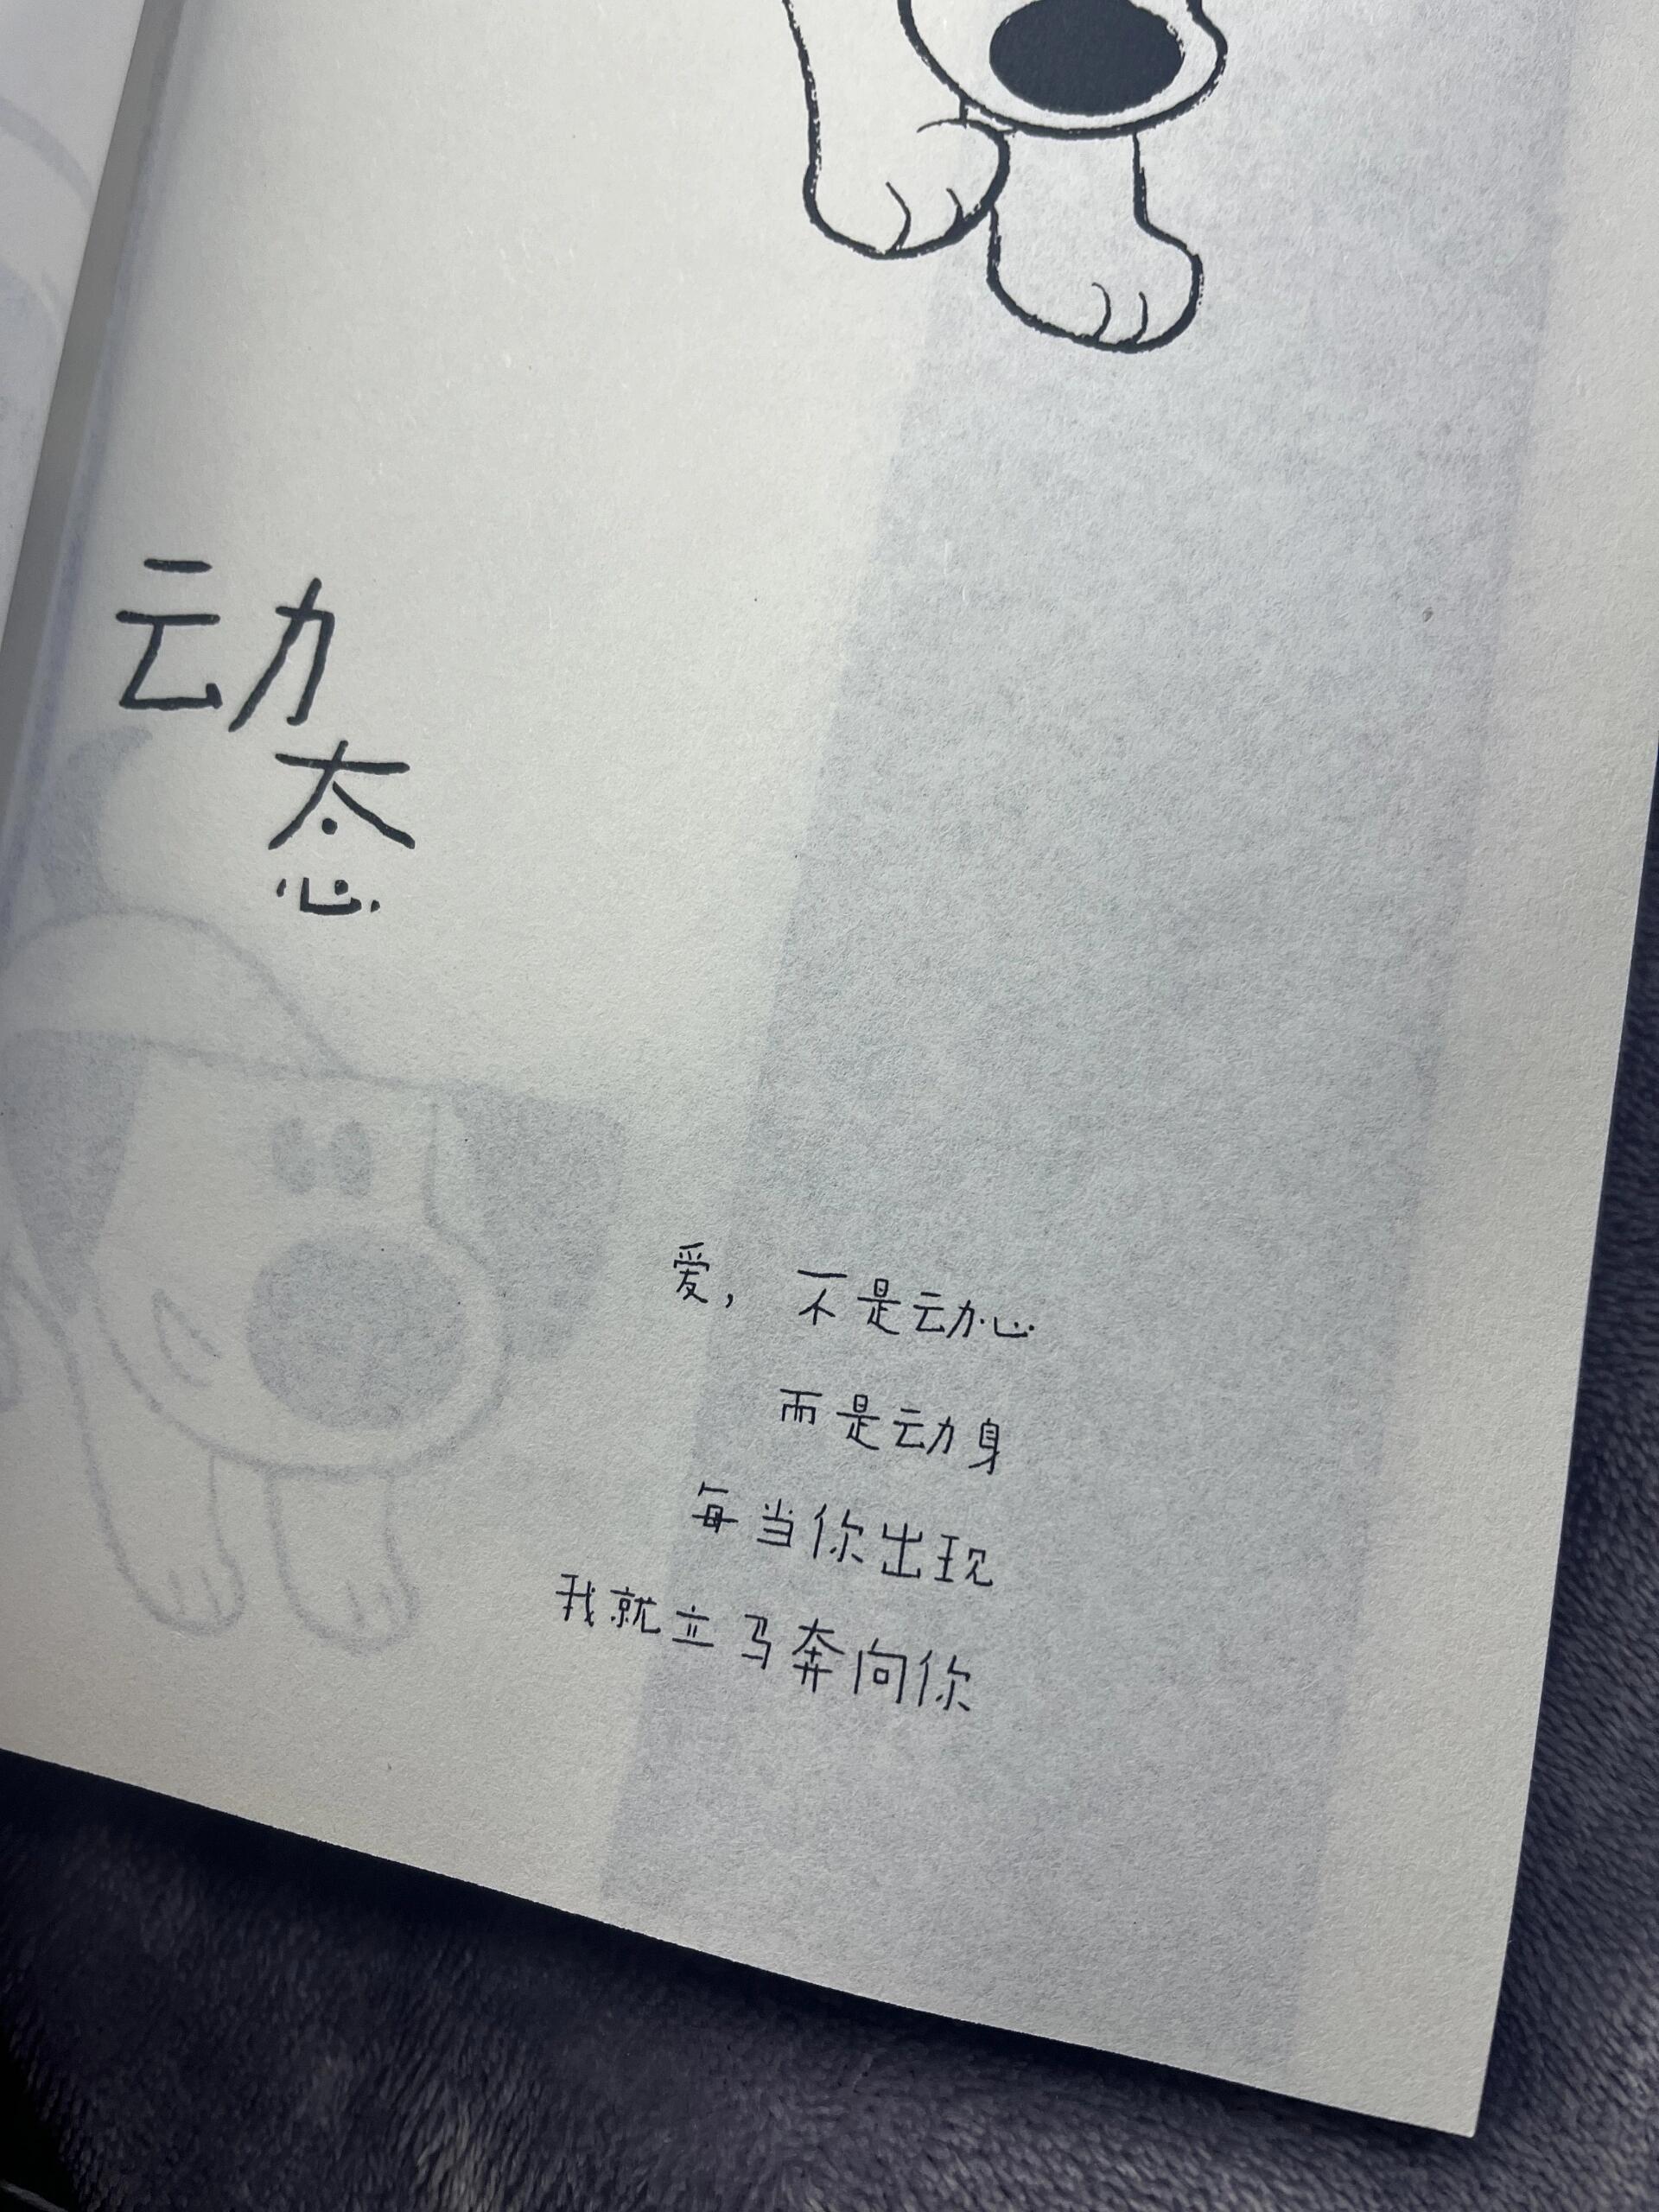 动
态
爱，不是动心
而是动身
每当你出现
我就立马奔向你